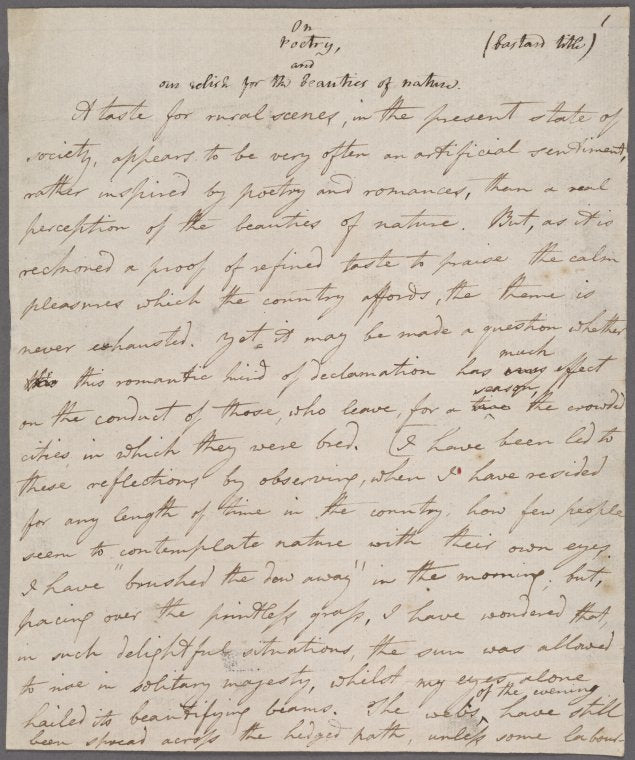 1
On
Poetry,      (bastard title)
and
our relish for the beauties of nature.
A taste for rural scenes, in the present state of
society, appears to be very often an artificial sentiment,
rather inspired by poetry and romances, than a real
perception of the beauties of nature. But, as it is
reckoned a proof of refined taste to praise the calm
pleasures which the country affords, the theme is
never exhausted. Yet it may be made a question whether
this romantic kind of declamation has much effect
on the conduct of those, who leave, for a season, the crowded
cities in which they were bred. (I have been led to
these reflections by observing, when I have resided
for any length of time in the country, how few people
seem to contemplate nature with their own eyes.
I have "brushed the dew away" in the morning; but,
pacing over the printless grass, I have wondered that,
in such delightful situations, the sun was allowed
to rise in solitary majesty, whilst my eyes alone
hailed its beautifying beams. The webs of the evening have still
been spread across the hedged path, unless some labour-